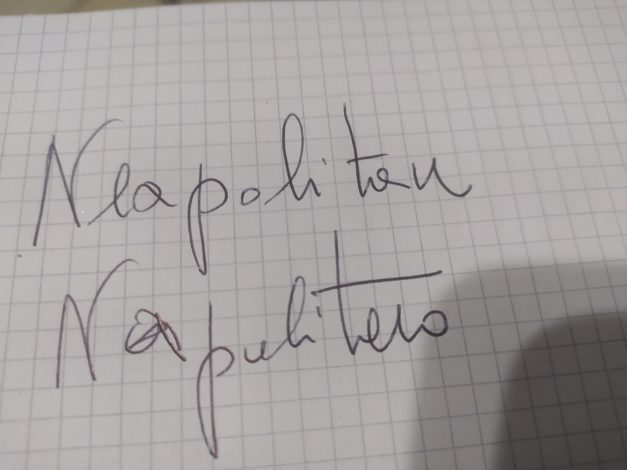 Neapolitan
Napulitano